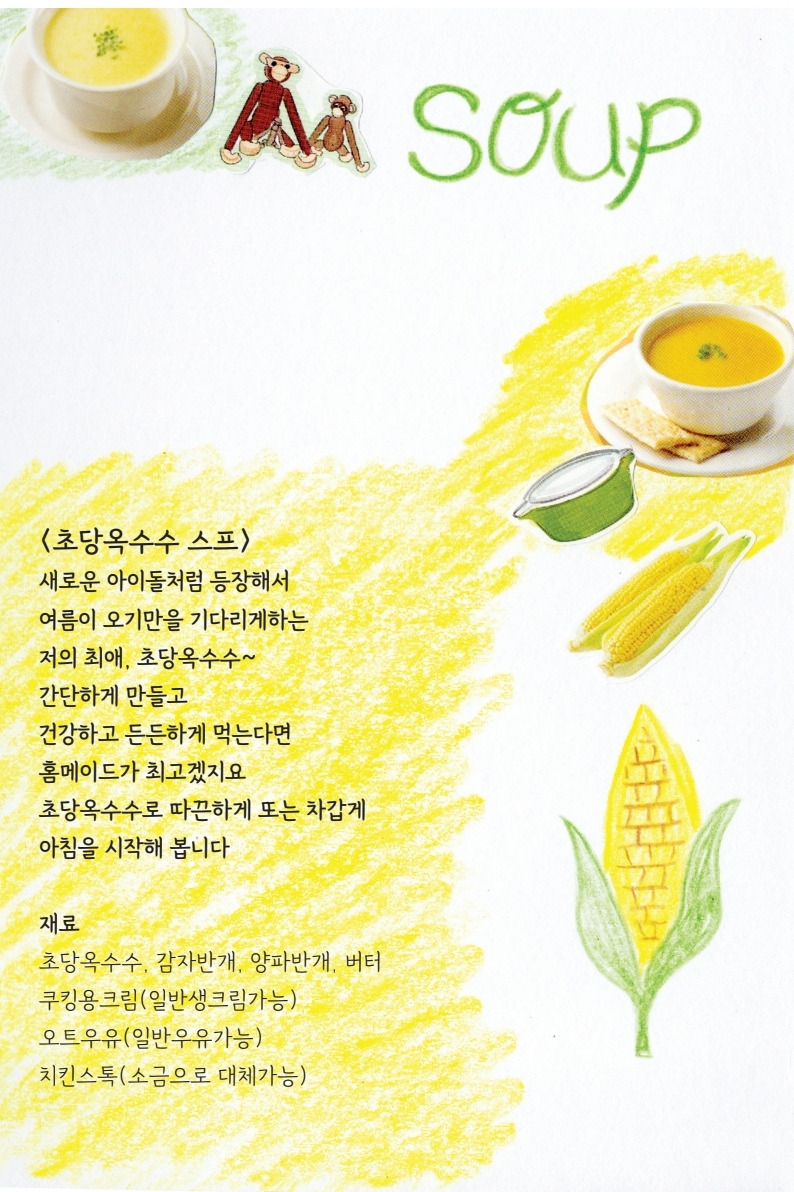 SOUP
<초당옥수수 스프>
새로운 아이돌처럼 등장해서
여름이 오기만을 기다리게하는
저의 최애, 초당옥수수~
간단하게 만들고
건강하고 든든하게 먹는다면
홈메이드가 최고겠지요
초당옥수수로 따끈하게 또는 차갑게
아침을 시작해 봅니다
재료
초당옥수수, 감자반개, 양파반개, 버터
쿠킹용크림(일반생크림가능)
오트우유(일반우유가능)
치킨스톡(소금으로 대체가능)